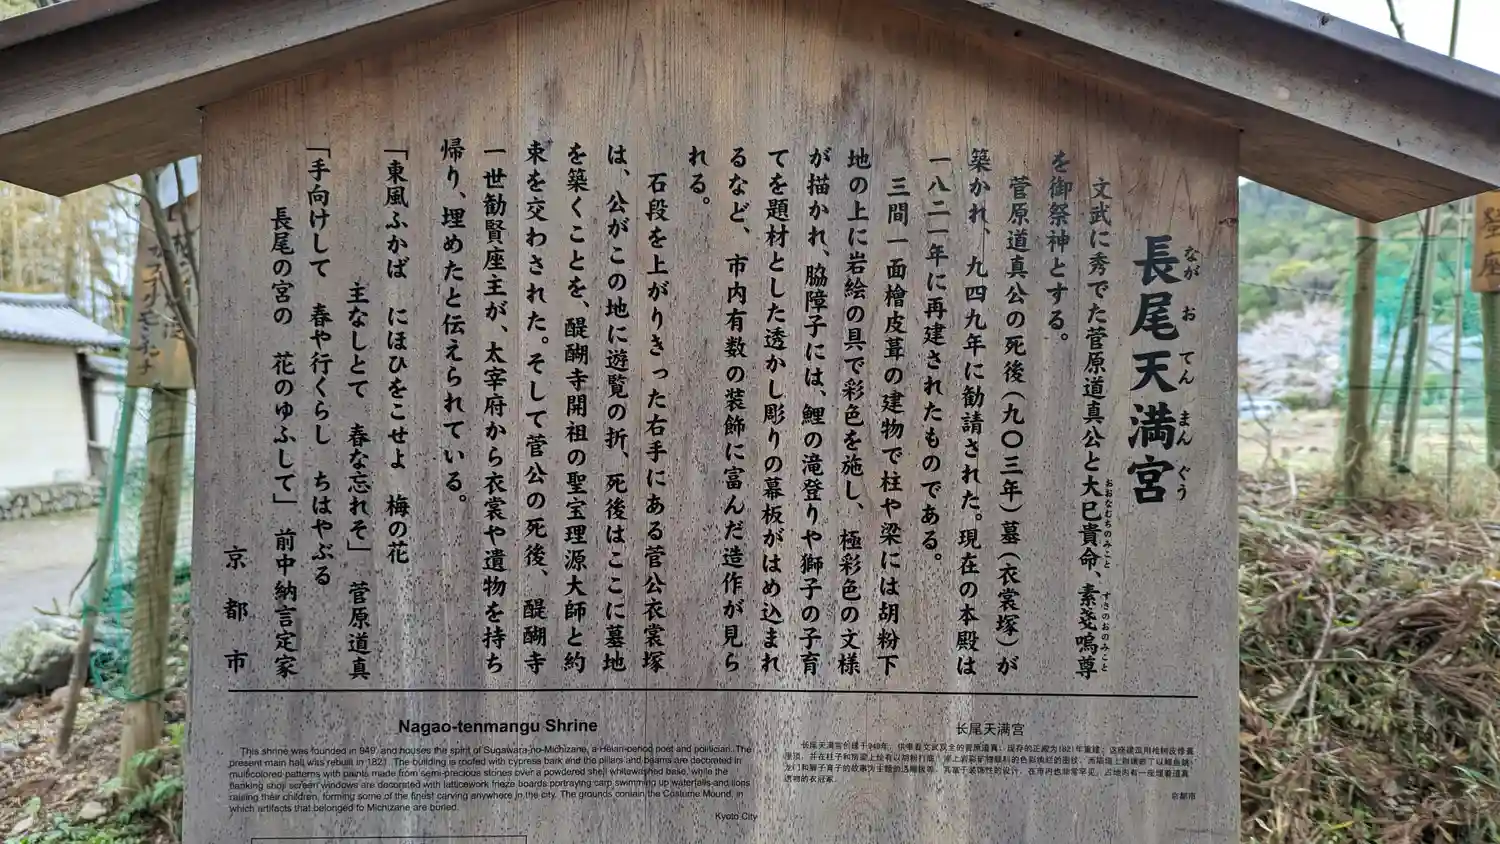 長尾天満宮
ながおてんまんぐう
文武に秀でた菅原道真公と大巳貴命、素戔嗚尊
おおなむちのみこと
すさのおのみこと
を御祭神とする。
菅原道真公の死後（九〇三年）墓（衣裳塚）が
築かれ、九四九年に勧請された。現在の本殿は
一八二一年に再建されたものである。
三間一面檜皮葺の建物で柱や梁には胡粉下
地の上に岩絵の具で彩色を施し、極彩色の文様
が描かれ、脇障子には、鯉の滝登りや獅子の子育
てを題材とした透かし彫りの幕板がはめ込まれ
るなど、市内有数の装飾に富んだ造作が見ら
れる。
石段を上がりきった右手にある菅公衣裳塚
は、公がこの地に遊覧の折、死後はここに墓地
を築くことを、醍醐寺開祖の聖宝理源大師と約
束を交わされた。そして菅公の死後、醍醐寺
一世勧賢座主が、太宰府から衣裳や遺物を持ち
帰り、埋めたと伝えられている。
「東風ふかば にほひをこせよ 梅の花
主なしとて 春な忘れそ」 菅原道真
「手向けして 春や行くらし ちはやぶる
長尾の宮の 花のゆふして」 前中納言定家
京都市
Nagao-tenmangu Shrine
This shrine was founded in 949, and houses the spirit of Sugawara-no-Michizane, a Heian-period poet and politician. The
present main hall was rebuilt in 1821. The building is roofed with cypress bark and the pillars and beams are decorated in
multicolored patterns with paints made from semi-precious stones over a powdered shell whitewashed base, while the
flanking shoji screen windows are decorated with latticework frieze boards portraying carp swimming up waterfalls and lions
raising their children, forming some of the finest carving anywhere in the city. The grounds contain the Costume Mound, in
which artifacts that belonged to Michizane are buried.
Kyoto City
长尾天满宫
京都市